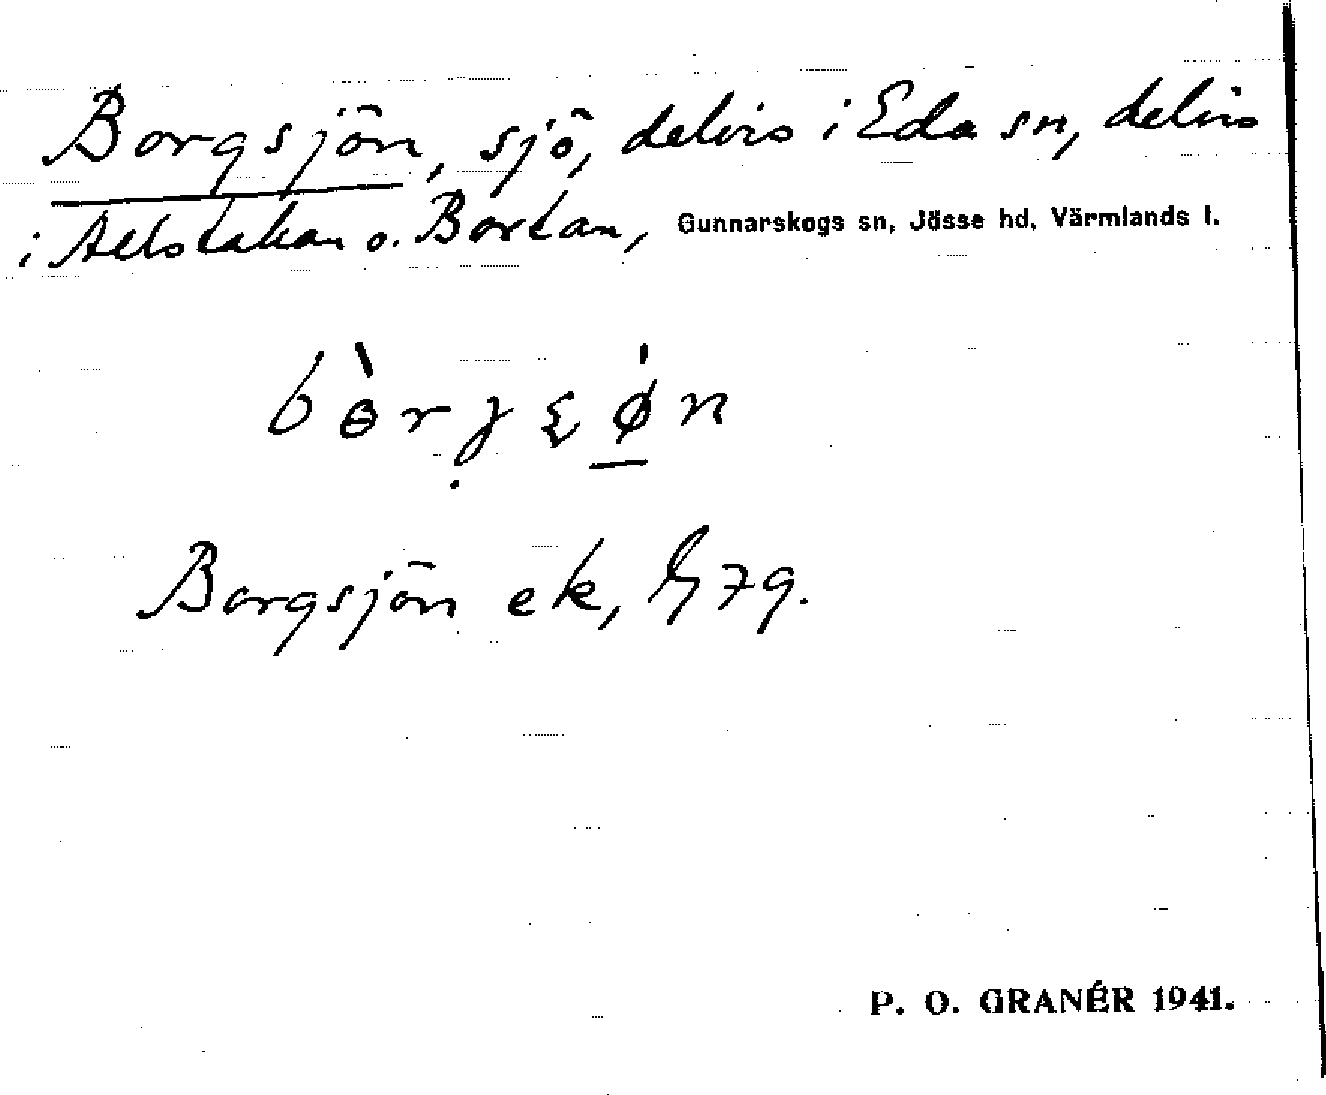 Borgsjön, sjö, delvis i Eda sn, delvis
i Allstakan o. Bortan, Gunnarskogs sn, Jösse hd, Värmlands l.
Borgsjön ek,
P. O. GRANÉR 1941.